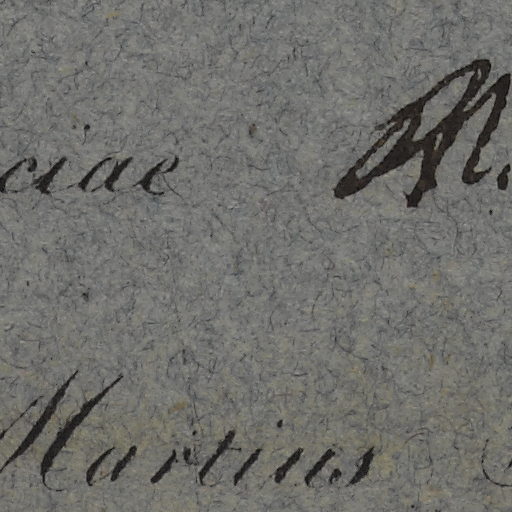 ciae M.
Martius